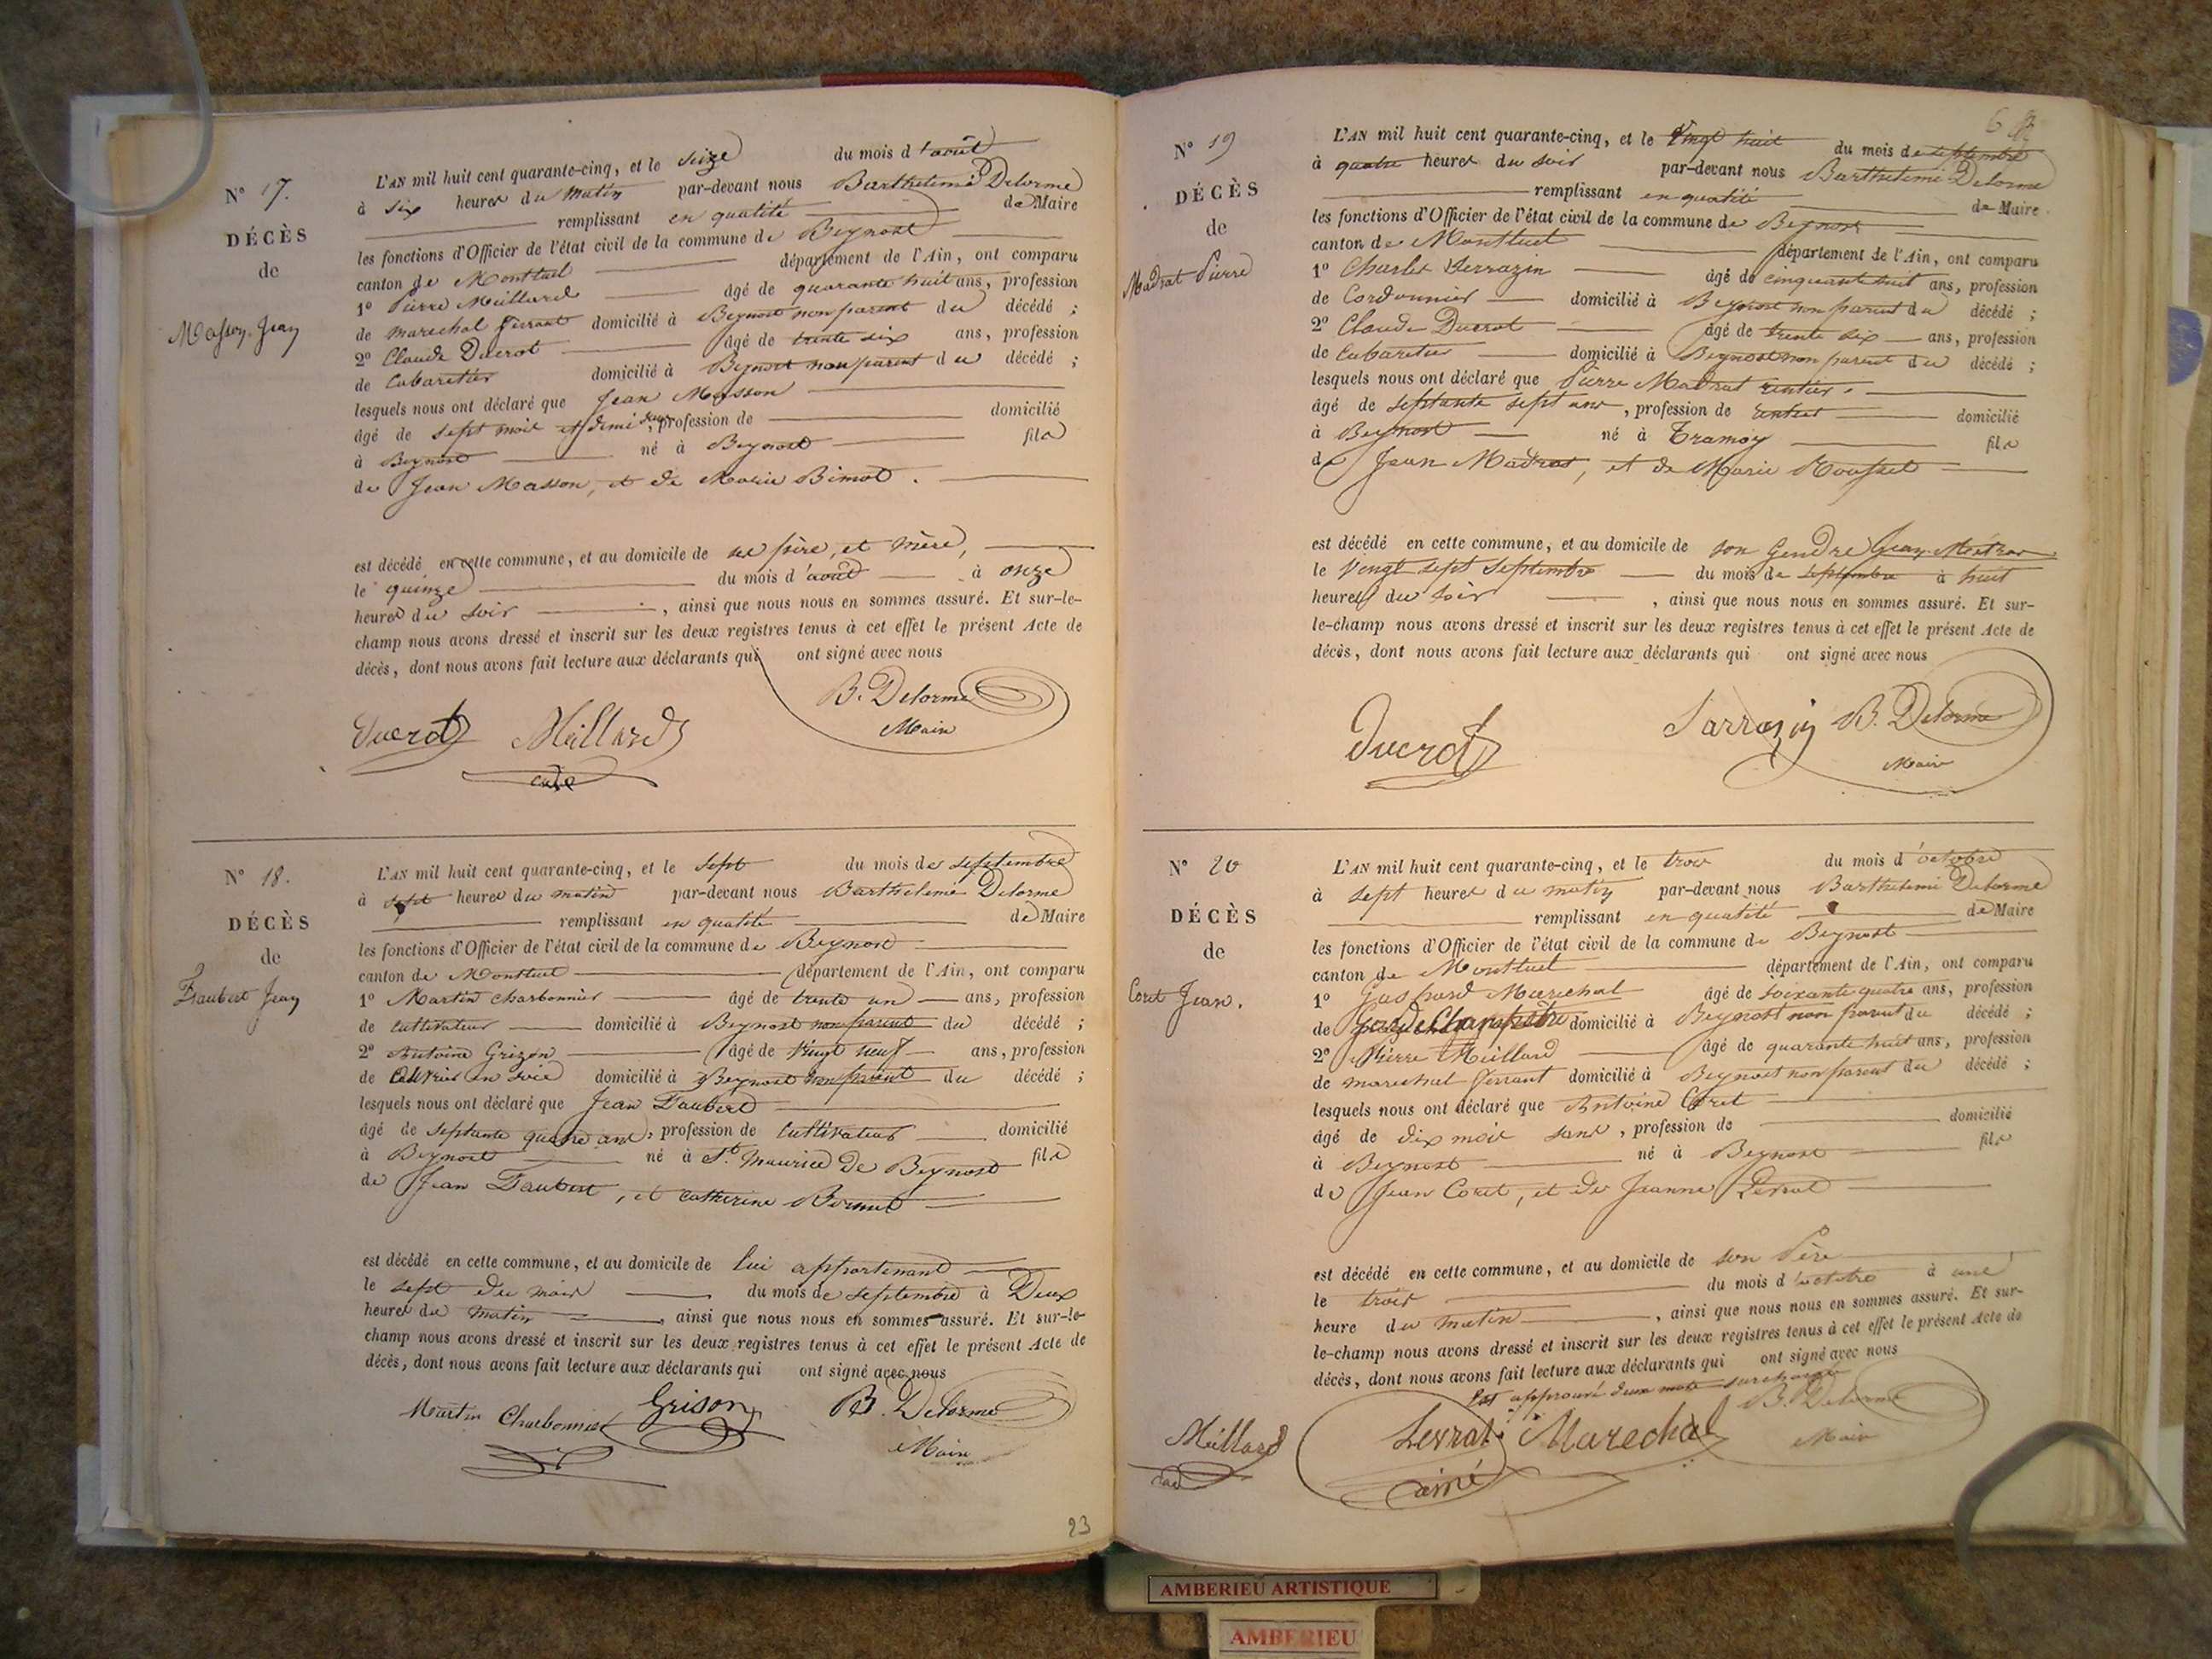 N° 17.
DÉCÈS
de
Masson Jean
L'AN mil huit cent quarante-cinq, et le seize du mois d'août
à six heures du matin par-devant nous Barthelemi Delorme
remplissant en qualité de Maire
les fonctions d'Officier de l'état civil de la commune de Beynost
canton de Montluel département de l'Ain, ont comparu
1° Pierre Meillard âgé de quarante huit ans, profession
de marechal ferrant domicilié à Beynost non parent du décédé ;
2° Claude Ducrot âgé de trente six ans, profession
de Cabaretier domicilié à Beynost non parent du décédé ;
lesquels nous ont déclaré que Jean Masson
âgé de sept mois et demi, profession de domicilié
à Beynost né à Beynost fils
de Jean Masson, et de Marie Bimot.
est décédé en cette commune, et au domicile de ses père, et mère,
le quinze du mois d'août à onze
heures du soir, ainsi que nous nous en sommes assuré. Et sur-le-
champ nous avons dressé et inscrit sur les deux registres tenus à cet effet le présent Acte de
décès, dont nous avons fait lecture aux déclarants qui ont signé avec nous
B. Delorme
Maire
Ducrot Meillard
N° 18.
DÉCÈS
de
Jean
L'AN mil huit cent quarante-cinq, et le sept du mois de septembre
à sept heures du matin par-devant nous Barthelemi Delorme
remplissant en qualité de Maire
les fonctions d'Officier de l'état civil de la commune de Beynost
canton de Montluel département de l'Ain, ont comparu
1° Martin Charbonnier âgé de trente un ans, profession
de cultivateur domicilié à Beynost non parent du décédé ;
2° Antoine Grizon âgé de vingt neuf ans, profession
de ouvrier en soie domicilié à Beynost non parent du décédé ;
lesquels nous ont déclaré que Jean
âgé de septante quatre ans, profession de Cultivateur domicilié
à Beynost né à St. Maurice de Beynost fils
de Jean, et Catherine
est décédé en cette commune, et au domicile de lui appartenant
le sept du mois du mois de septembre à Deux
heures du matin, ainsi que nous nous en sommes assuré. Et sur-le-
champ nous avons dressé et inscrit sur les deux registres tenus à cet effet le présent Acte de
décès, dont nous avons fait lecture aux déclarants qui ont signé avec nous
Martin Charbonnier Grison B. Delorme
Maire
23
N° 19
DÉCÈS
de
Madrat Pierre
L'AN mil huit cent quarante-cinq, et le vingt huit du mois de septembre
à quatre heures du soir par-devant nous Barthelemi Delorme
remplissant en qualité de Maire
les fonctions d'Officier de l'état civil de la commune de Beynost
canton de Montluel département de l'Ain, ont comparu
1° Charles Serrazin âgé de cinquante huit ans, profession
de Cordonnier domicilié à Beynost non parent du décédé ;
2° Claude Ducrot âgé de trente six ans, profession
de Cabaretier domicilié à Beynost non parent du décédé ;
lesquels nous ont déclaré que Pierre Madrat rentier
âgé de septante sept ans, profession de rentier domicilié
à Beynost né à Tramoy fils
de Jean Madrat, et de Marie Rousset
est décédé en cette commune, et au domicile de son Gendre Jean
le vingt sept septembre du mois de septembre à huit
heures du soir, ainsi que nous nous en sommes assuré. Et sur-
le-champ nous avons dressé et inscrit sur les deux registres tenus à cet effet le présent Acte de
décès, dont nous avons fait lecture aux déclarants qui ont signé avec nous
Ducrot Sarrazin B. Delorme
Maire
N° 20
DÉCÈS
de
Coret Jean.
L'AN mil huit cent quarante-cinq, et le trois du mois d'octobre
à sept heures du matin par-devant nous Barthelemi Delorme
remplissant en qualité de Maire
les fonctions d'Officier de l'état civil de la commune de Beynost
canton de Montluel département de l'Ain, ont comparu
1° Gaspard Marechal âgé de soixante quatre ans, profession
de Garde Champêtre domicilié à Beynost non parent du décédé ;
2° Pierre Meillard âgé de quarante huit ans, profession
de marechal ferrant domicilié à Beynost non parent du décédé ;
lesquels nous ont déclaré que Antoine Coret
âgé de dix mois sans, profession de domicilié
à Beynost né à Beynost fils
de Jean Coret, et de Jeanne Levrat
est décédé en cette commune, et au domicile de son Père
le trois du mois d'octobre à une
heure du matin, ainsi que nous nous en sommes assuré. Et sur-
le-champ nous avons dressé et inscrit sur les deux registres tenus à cet effet le présent Acte de
décès, dont nous avons fait lecture aux déclarants qui ont signé avec nous
Est approuvé deux mots surchargés
B. Delorme
Maire
Meillard Levrat Marechal
ainé
AMBERIEU ARTISTIQUE
AMBERIEU